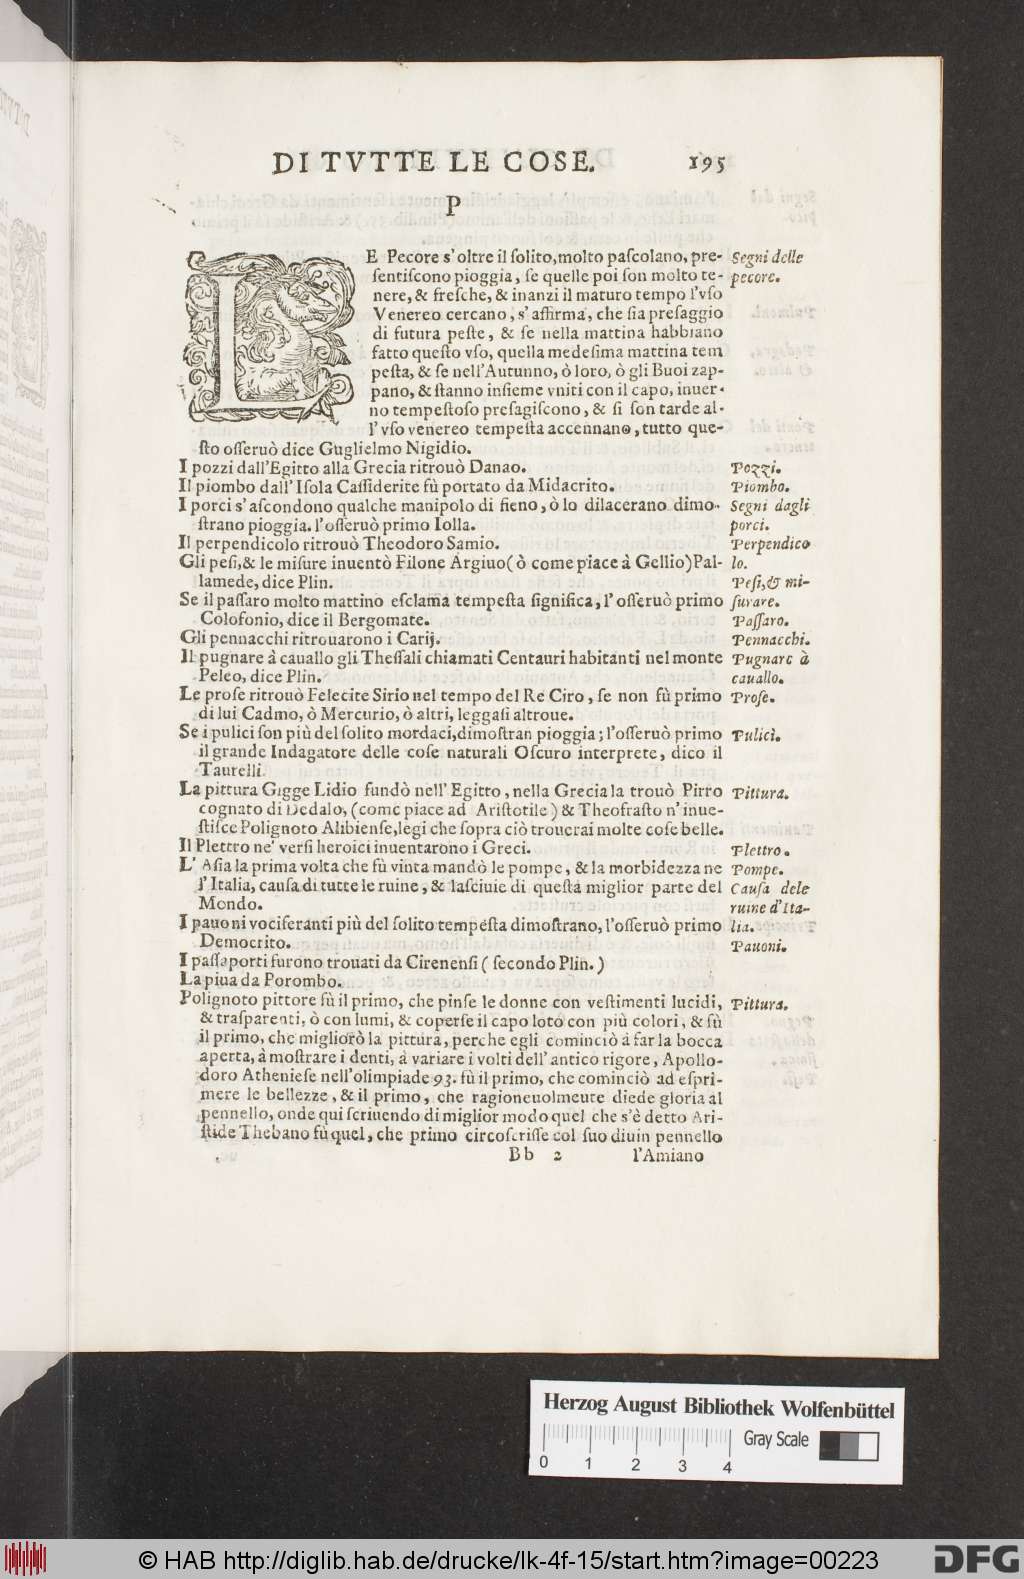 DI TVTTE LE COSE. 195
P
LE Pecore s'oltre il ſolito,molto paſcolano, pre- Segni delle
ſentiſcono pioggia, ſe quelle poi ſon molto te- pecore.
nere, & freſche, & inanzi il maturo tempo l'vſo
Venereo cercano, s'affirma, che ſia preſaggio
di futura peſte, & ſe nella mattina habbiano
fatto queſto vſo, quella medeſima mattina tem
peſta, & ſe nell'Autunno, ò loro, ò gli Buoi zap-
pano, & ſtanno inſieme vniti con il capo, inuer-
no tempeſtoſo preſagiſcono, & ſi ſon tarde al-
l'vſo venereo tempeſta accennano, tutto que-
ſto oſſeruò dice Guglielmo Nigidio.
I pozzi dall'Egitto alla Grecia ritrouò Danao. Pozzi.
Il piombo dall'Iſola Caſſiderite fù portato da Midacrito. Piombo.
I porci s'aſcondono qualche manipolo di fieno, ò lo dilacerano dimo- Segni dagli
ſtrano pioggia. l'oſſeruò primo Iolla. porci.
Il perpendicolo ritrouò Theodoro Samio. Perpendico
Gli peſi,& le miſure inuentò Filone Argiuo(ò come piace à Gellio)Pal- lo.
lamede, dice Plin. Peſi,& mi-
Se il paſſaro molto mattino eſclama tempeſta ſignifica, l'oſſeruò primo ſurare.
Colofonio, dice il Bergomate. Paſſaro.
Gli pennacchi ritrouarono i Carij. Pennacchi.
Il pugnare à cauallo gli Theſſali chiamati Centauri habitanti nel monte Pugnare à
Peleo, dice Plin. cauallo.
Le proſe ritrouò Felecite Sirio nel tempo del Re Ciro, ſe non fù primo Proſe.
di lui Cadmo, ò Mercurio, ò altri, leggaſi altroue.
Se i pulici ſon più del ſolito mordaci,dimoſtran pioggia; l'oſſeruò primo Pulici.
il grande Indagatore delle coſe naturali Oſcuro interprete, dico il
Taurelli.
La pittura Gigge Lidio fundò nell'Egitto, nella Grecia la trouò Pirro Pittura.
cognato di Dedalo, (come piace ad Ariſtotile) & Theofraſto n'inue-
ſtiſce Polignoto Alibienſe,legi che ſopra ciò trouerai molte coſe belle.
Il Plettro ne' verſi heroici inuentarono i Greci. Plettro.
L'Aſia la prima volta che fù vinta mandò le pompe, & la morbidezza ne Pompe.
l'Italia, cauſa di tutte le ruine, & laſciuie di queſta miglior parte del Cauſa dele
Mondo. ruine d'Ita-
I pauoni vociferanti più del ſolito tempeſta dimoſtrano, l'oſſeruò primo lia.
Democrito. Pauoni.
I paſſaporti furono trouati da Cirenenſi (ſecondo Plin.)
La piua da Porombo.
Polignoto pittore fù il primo, che pinſe le donne con veſtimenti lucidi, Pittura.
& traſparenti, ò con lumi, & coperſe il capo loto con più colori, & fù
il primo, che migliorò la pittura, perche egli cominciò à far la bocca
aperta, à moſtrare i denti, à variare i volti dell'antico rigore, Apollo-
doro Athenieſe nell'olimpiade 93. fù il primo, che cominciò ad eſpri-
mere le bellezze, & il primo, che ragioneuolmente diede gloria al
pennello, onde qui ſcriuendo di miglior modo quel che s'è detto Ari-
ſtide Thebano fù quel, che primo circoſcriſſe col ſuo diuin pennello
Bb 2 l'Amiano
Herzog August Bibliothek Wolfenbüttel
Gray Scale
0 1 2 3 4
© HAB http://diglib.hab.de/drucke/lk-4f-15/start.htm?image=00223
DFG